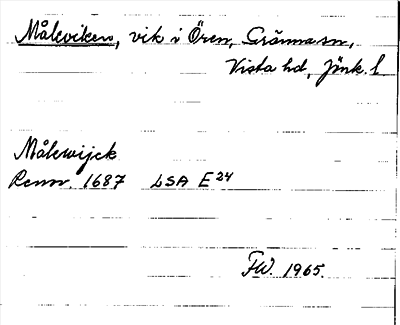 Måleviken, vik i Ören, Gränna sn,
Vista hd, Jönk. l
Målewijck
Renov. 1687 LSA E 24
FW. 1965.